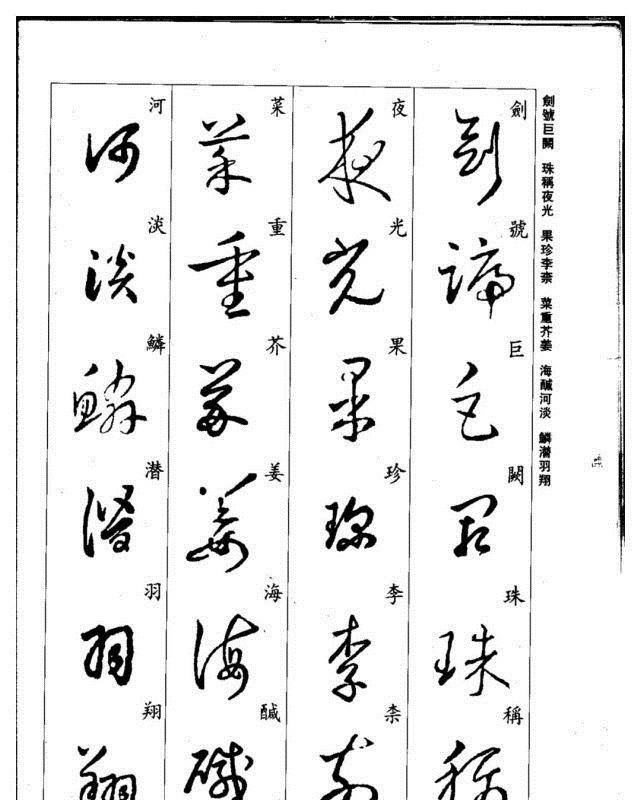 劍號巨闕　珠稱夜光　果珍李柰　菜重芥姜　海醎河淡　鱗潛羽翔
劍號巨闕珠稱
夜光果珍李柰
菜重芥姜海醎
河淡鱗潛羽翔